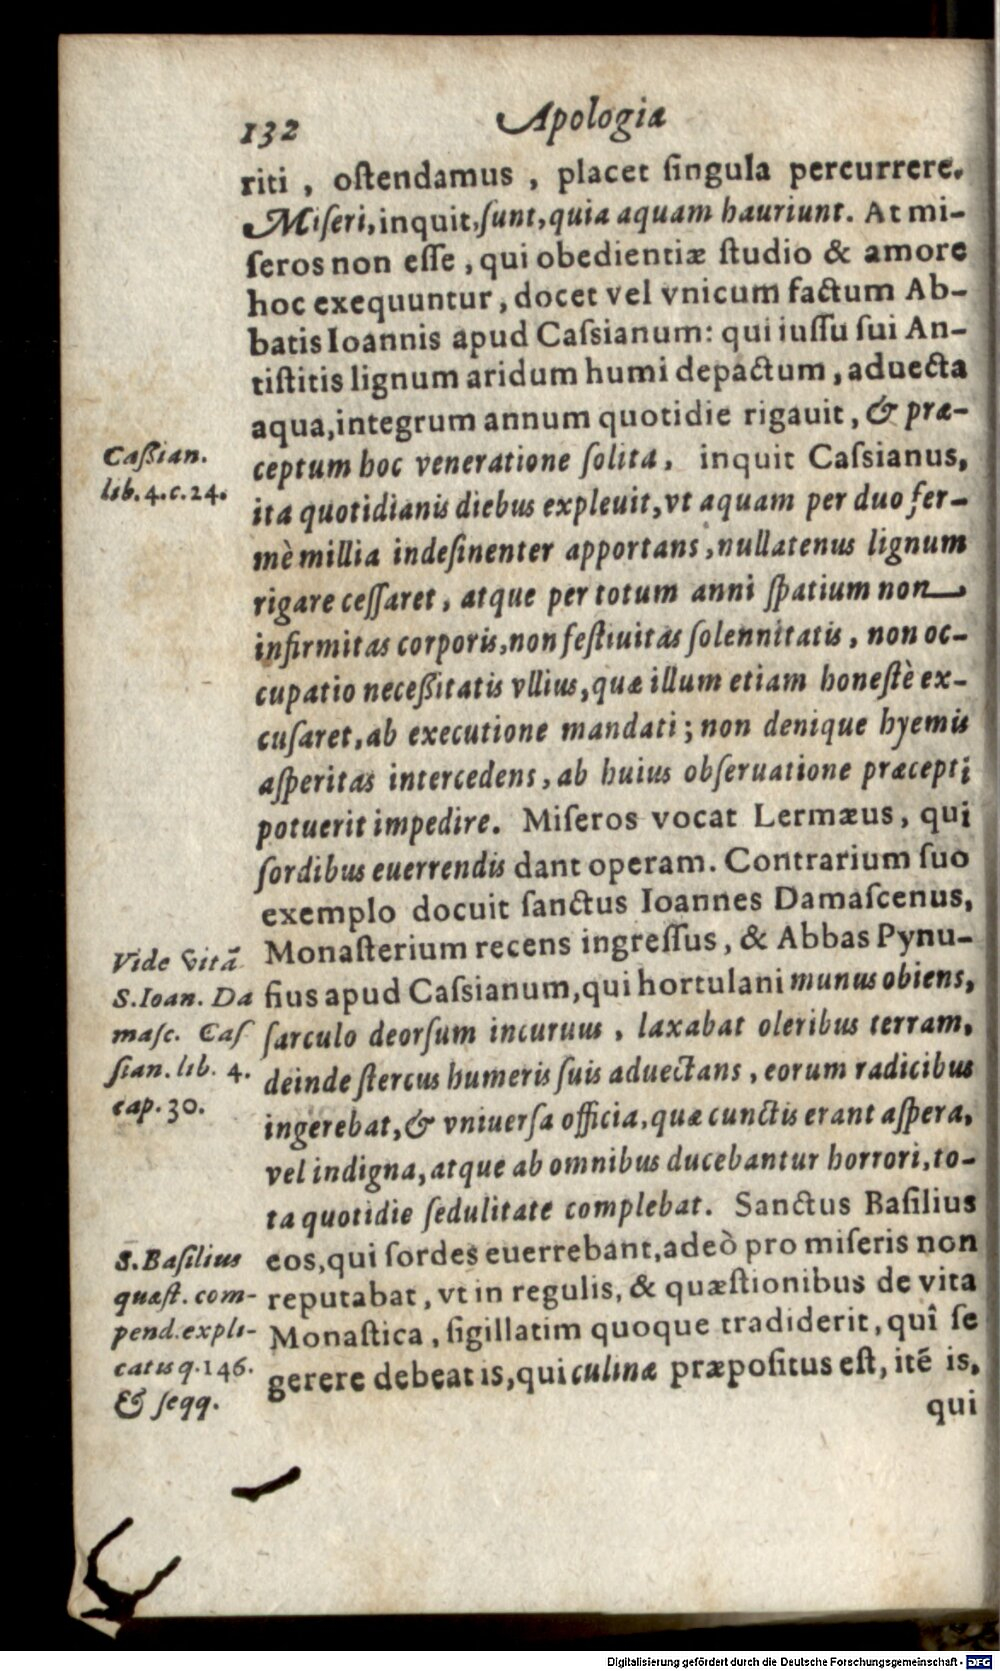 132 Apologiæ
riti, oſtendamus, placet ſingula percurrere.
Miſeri, inquit, ſunt, quia aquam hauriunt. At mi-
ſeros non eſſe, qui obedientiæ ſtudio & amore
hoc exequuntur, docet vel vnicum factum Ab-
batis Ioannis apud Caſsianum: qui iuſſu ſui An-
tiſtitis lignum aridum humi depactum, aduecta
aqua, integrum annum quotidie rigauit, & præ-
ceptum hoc veneratione ſolita, inquit Caſsianus,
ita quotidianis diebus expleuit, vt aquam per duo fer-
mè millia indeſinenter apportans, nullatenus lignum
rigare ceſſaret, atque per totum anni ſpatium non
infirmitas corporis, non feſtiuitas ſolennitatis, non oc-
cupatio neceßitatis vllius, quæ illum etiam honeſtè ex-
cuſaret, ab executione mandati; non denique hyemis
aſperitas intercedens, ab huius obſeruatione præcepti
potuerit impedire. Miſeros vocat Lermæus, qui
ſordibus euerrendis dant operam. Contrarium ſuo
exemplo docuit ſanctus Ioannes Damaſcenus,
Monaſterium recens ingreſſus, & Abbas Pynu-
fius apud Caſsianum, qui hortulani munus obiens,
ſarculo deorſum incuruus, laxabat oleribus terram,
deinde ſtercus humeris ſuis aduectans, eorum radicibus
ingerebat, & vniuerſa officia, quæ cunctis erant aſpera,
vel indigna, atque ab omnibus ducebantur horrori, to-
ta quotidie ſedulitate complebat. Sanctus Baſilius
eos, qui ſordes euerrebant, adeò pro miſeris non
reputabat, vt in regulis, & quæſtionibus de vita
Monaſtica, ſigillatim quoque tradiderit, quî ſe
gerere debeat is, qui culinæ præpoſitus eſt, itē is,
qui
Caßian.
lib. 4. c. 24.
Vide vitā
S. Ioan. Da
maſc. Caſ
ſian. lib. 4.
cap. 30.
S. Baſilius
quæſt. com-
pend. expli-
catis q. 146.
& ſeqq.
Digitalisierung gefördert durch die Deutsche Forschungsgemeinschaft - DFG